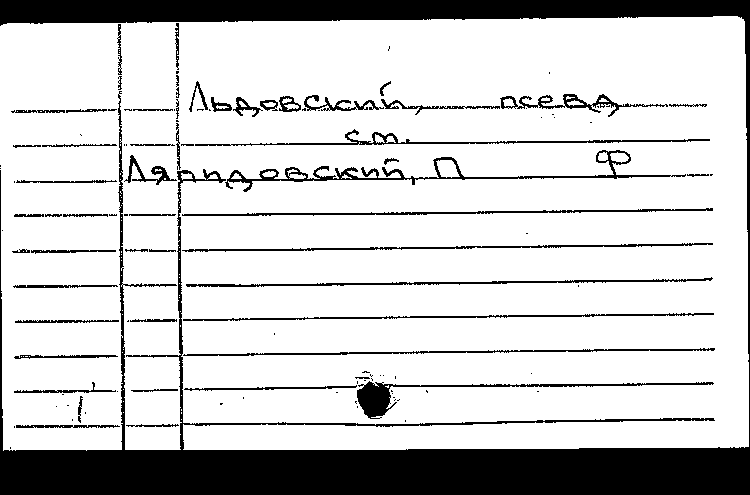 Льдовский, псевд
см.
Ляпидовский, П Ф